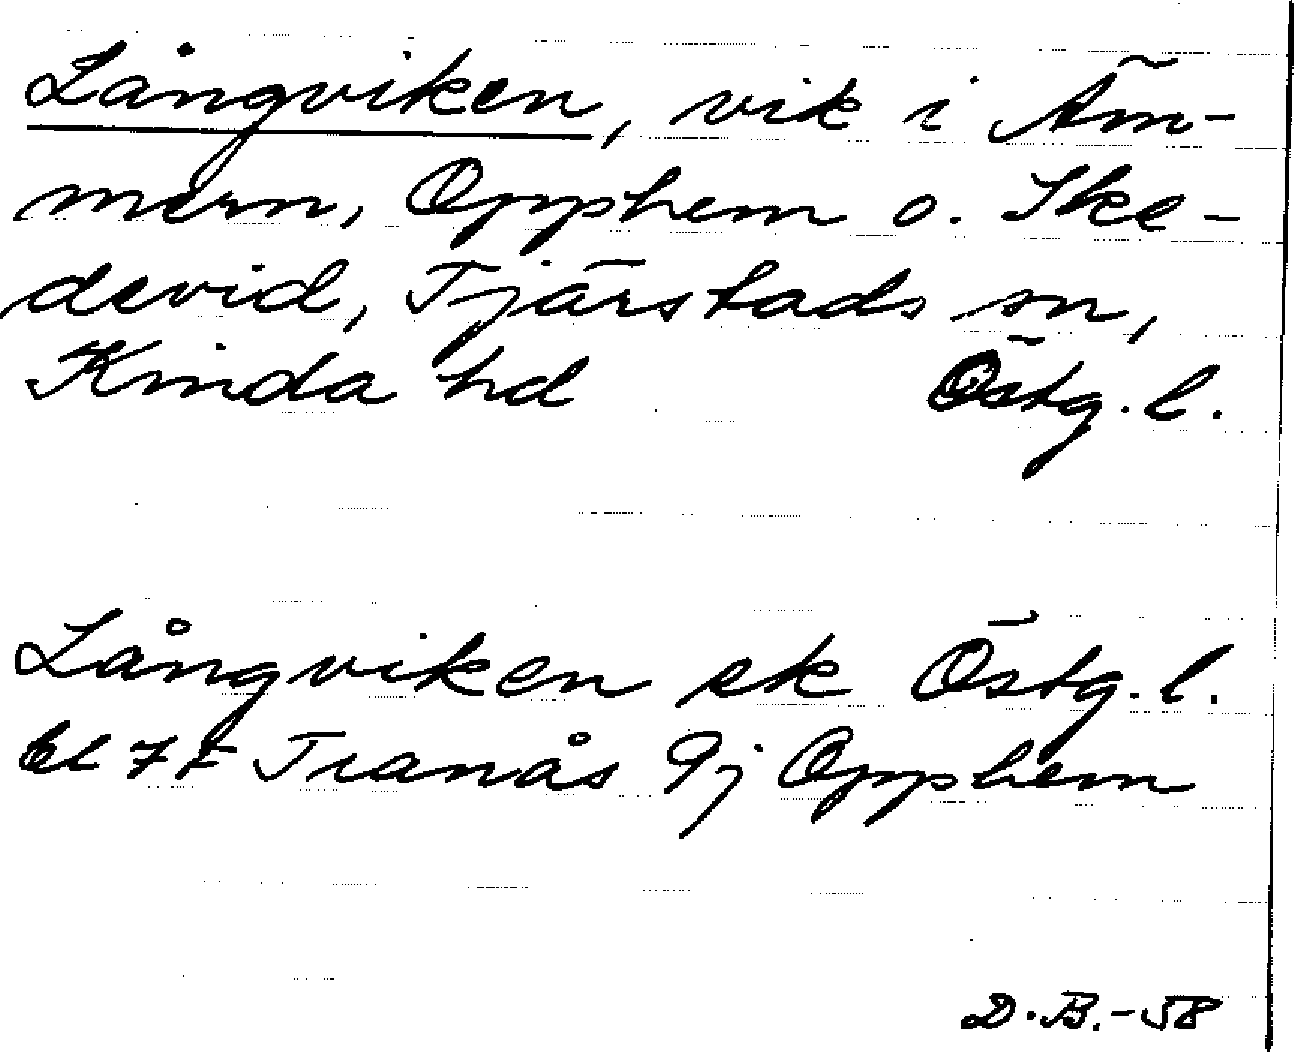 Långviken, vik i Äm-
mern, Opphem o. Ike-
devid, Tjärstads sn,
Kinda hd Östg. l.
Långviken ek Östg. l.
bl 7F Tranås 9j Opphem
D.B.-58